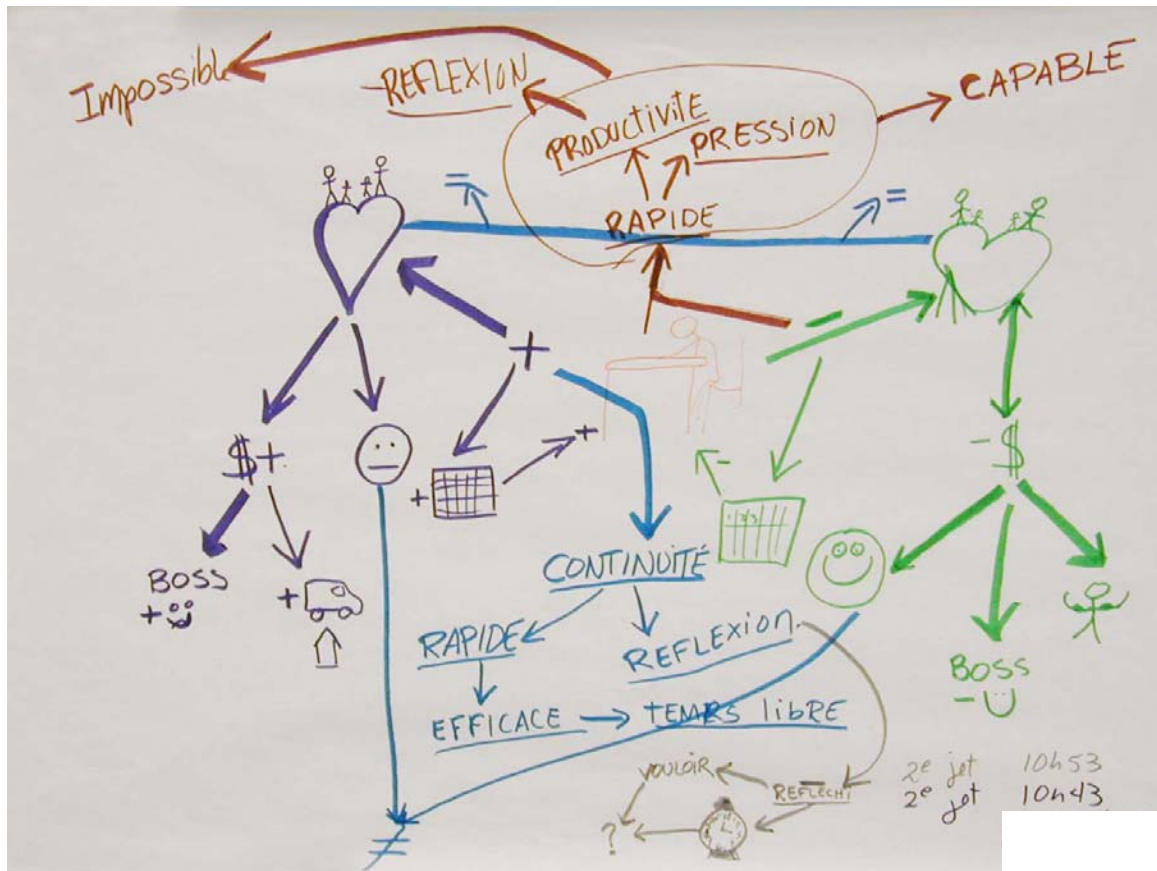 Impossible
-REFLEXION
CAPABLE
PRODUCTIVITÉ
PRESSION
RAPIDE
=
=
+
-
$+
+
+
-
-$
BOSS
+
+
CONTINUITÉ
RAPIDE
REFLEXION
BOSS
-
EFFICACE
TEMPS LIBRE
VOULOIR
REFLÉCHI
?
≠
2e jet 10h53
2e jet 10h43